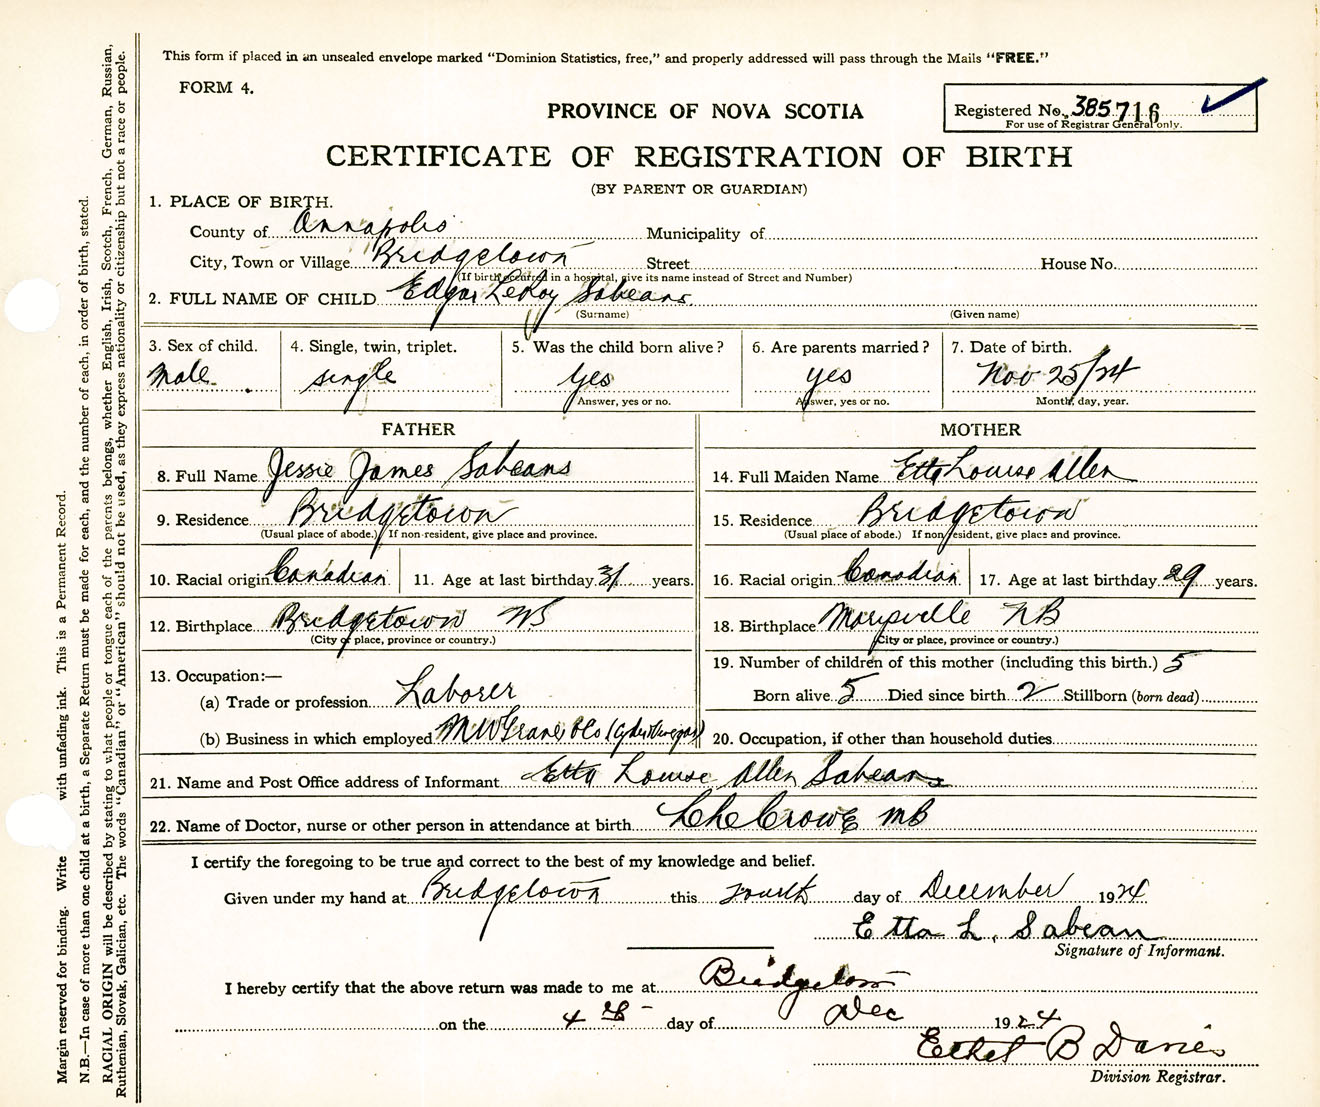 This form if placed in an unsealed envelope marked “Dominion Statistics, free,” and properly addressed will pass through the Mails “FREE.”
FORM 4.
PROVINCE OF NOVA SCOTIA
Registered No. 385716
For use of Registrar General only.
CERTIFICATE OF REGISTRATION OF BIRTH
(BY PARENT OR GUARDIAN)
1. PLACE OF BIRTH.
County of Annapolis Municipality of
City, Town or Village Bridgetown Street House No.
(If birth occurred in a hospital, give its name instead of Street and Number)
2. FULL NAME OF CHILD Edgar LeRoy Sabeans
(Surname) (Given name)
3. Sex of child. 4. Single, twin, triplet. 5. Was the child born alive? 6. Are parents married? 7. Date of birth.
Male single yes yes Nov 25/24
Answer, yes or no. Answer, yes or no. Month, day, year.
FATHER MOTHER
8. Full Name Jessie James Sabeans 14. Full Maiden Name Etta Louise Allen
9. Residence Bridgetown 15. Residence Bridgetown
(Usual place of abode.) If non-resident, give place and province. (Usual place of abode.) If non-resident, give place and province.
10. Racial origin Canadian 11. Age at last birthday 31 years. 16. Racial origin Canadian 17. Age at last birthday 29 years.
12. Birthplace Bridgetown NS 18. Birthplace Marysville NB
(City or place, province or country.) (City or place, province or country.)
13. Occupation:— 19. Number of children of this mother (including this birth.) 5
(a) Trade or profession Laborer Born alive 5 Died since birth 2 Stillborn (born dead)
(b) Business in which employed M W Graves & Co 20. Occupation, if other than household duties
21. Name and Post Office address of Informant Etta Louise Allen Sabeans
22. Name of Doctor, nurse or other person in attendance at birth Crowe MD
I certify the foregoing to be true and correct to the best of my knowledge and belief.
Given under my hand at Bridgetown this fourth day of December 1924
Etta L. Sabean
Signature of Informant.
I hereby certify that the above return was made to me at Bridgetown
on the 4th day of Dec 1924
Ethel B Davies
Division Registrar.
Margin reserved for binding. Write with unfading ink. This is a Permanent Record.
N.B.—In case of more than one child at a birth, a Separate Return must be made for each, and the number of each, in order of birth, stated.
RACIAL ORIGIN will be described by stating to what people or tongue each of the parents belongs, whether English, Irish, Scotch, French, German, Russian,
Ruthenian, Slovak, Galician, etc. The words “Canadian” or “American” should not be used, as they express nationality or citizenship but not a race or people.